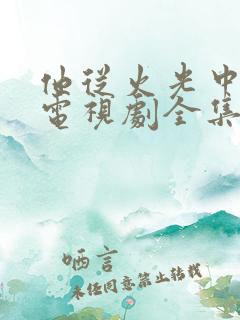 他從火光中
電視劇全集
哂言
未经同意禁止转载